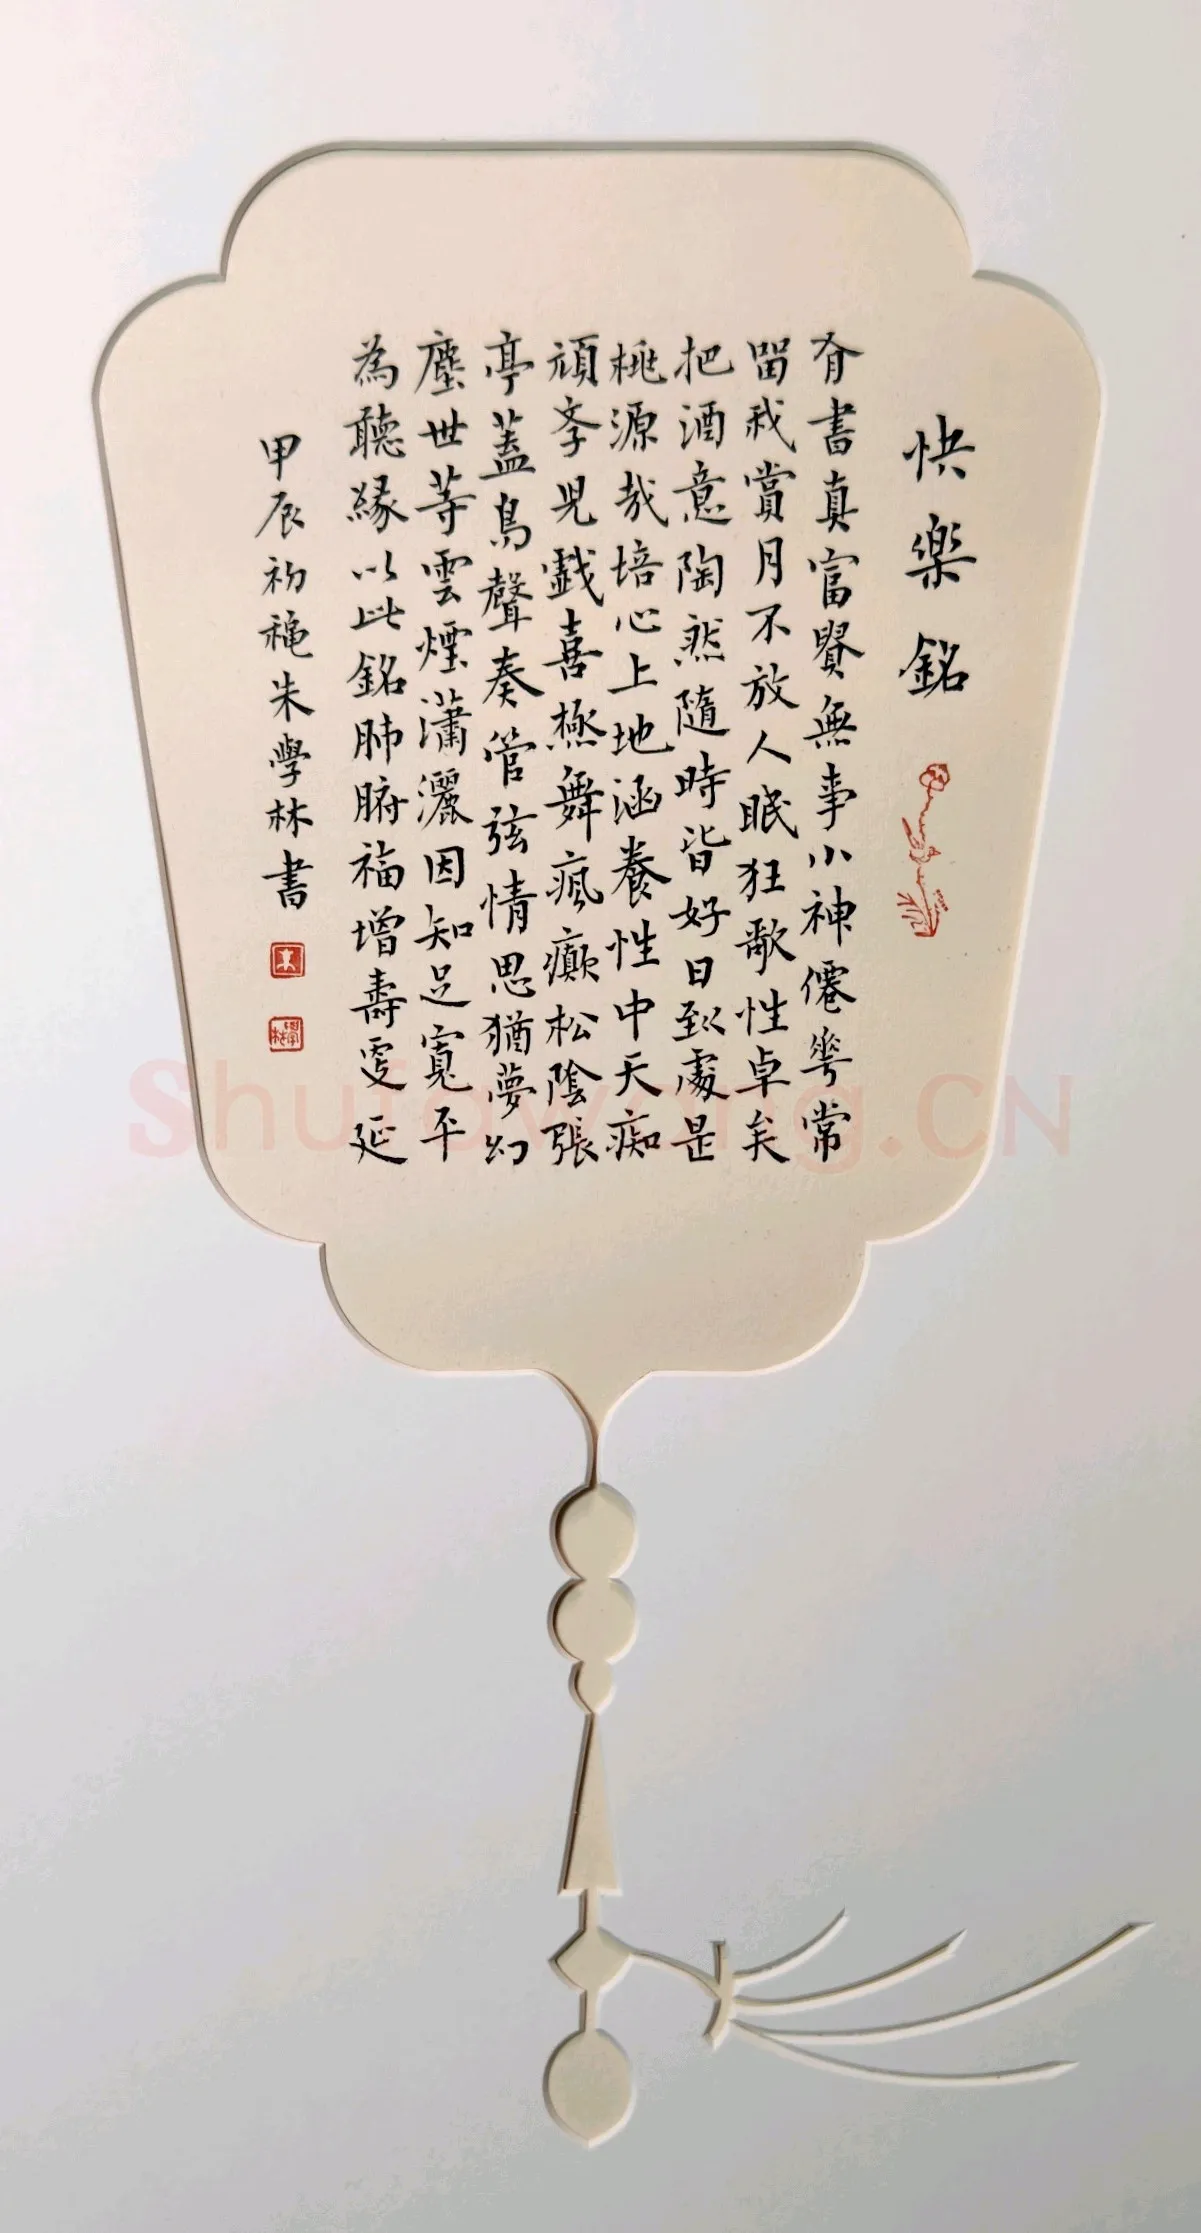 快樂銘
有書真富貴無事小神僊華常
留我賞月不放人眠狂歌性卓矣
把酒意陶然隨時皆好日到處是
桃源哉培心上地涵養性中天痴
頑李兒戲喜極舞瘋癲松陰張
亭蓋鳥聲奏管弦情思猶夢幻
塵世等雲煙瀟灑因知足寬平
為聽緣以此銘肺腑福增壽更延
甲辰初穐朱學林書
朱
學林
Shufawang.CN